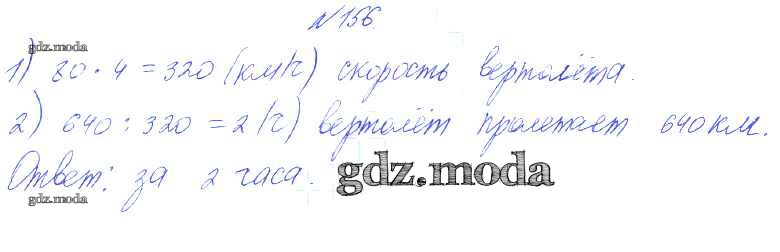 №156.
gdz.moda
1) 80 · 4 = 320 (км/ч) скорость вертолёта.
2) 640 : 320 = 2 (ч) вертолёт пролетает 640 км.
Ответ: за 2 часа.
gdz.moda
gdz.moda